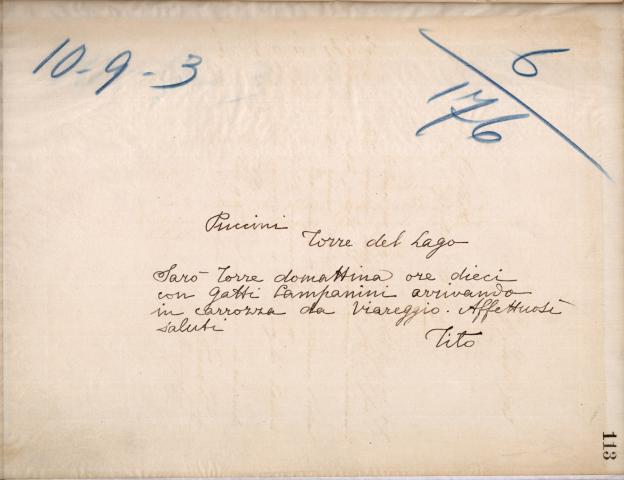 10-9-3
6
176
Puccini
Torre del Lago
Sarò Torre domattina ore dieci
con Gatti Campanini arrivando
in carrozza da Viareggio. Affettuosi
saluti
Tito
113